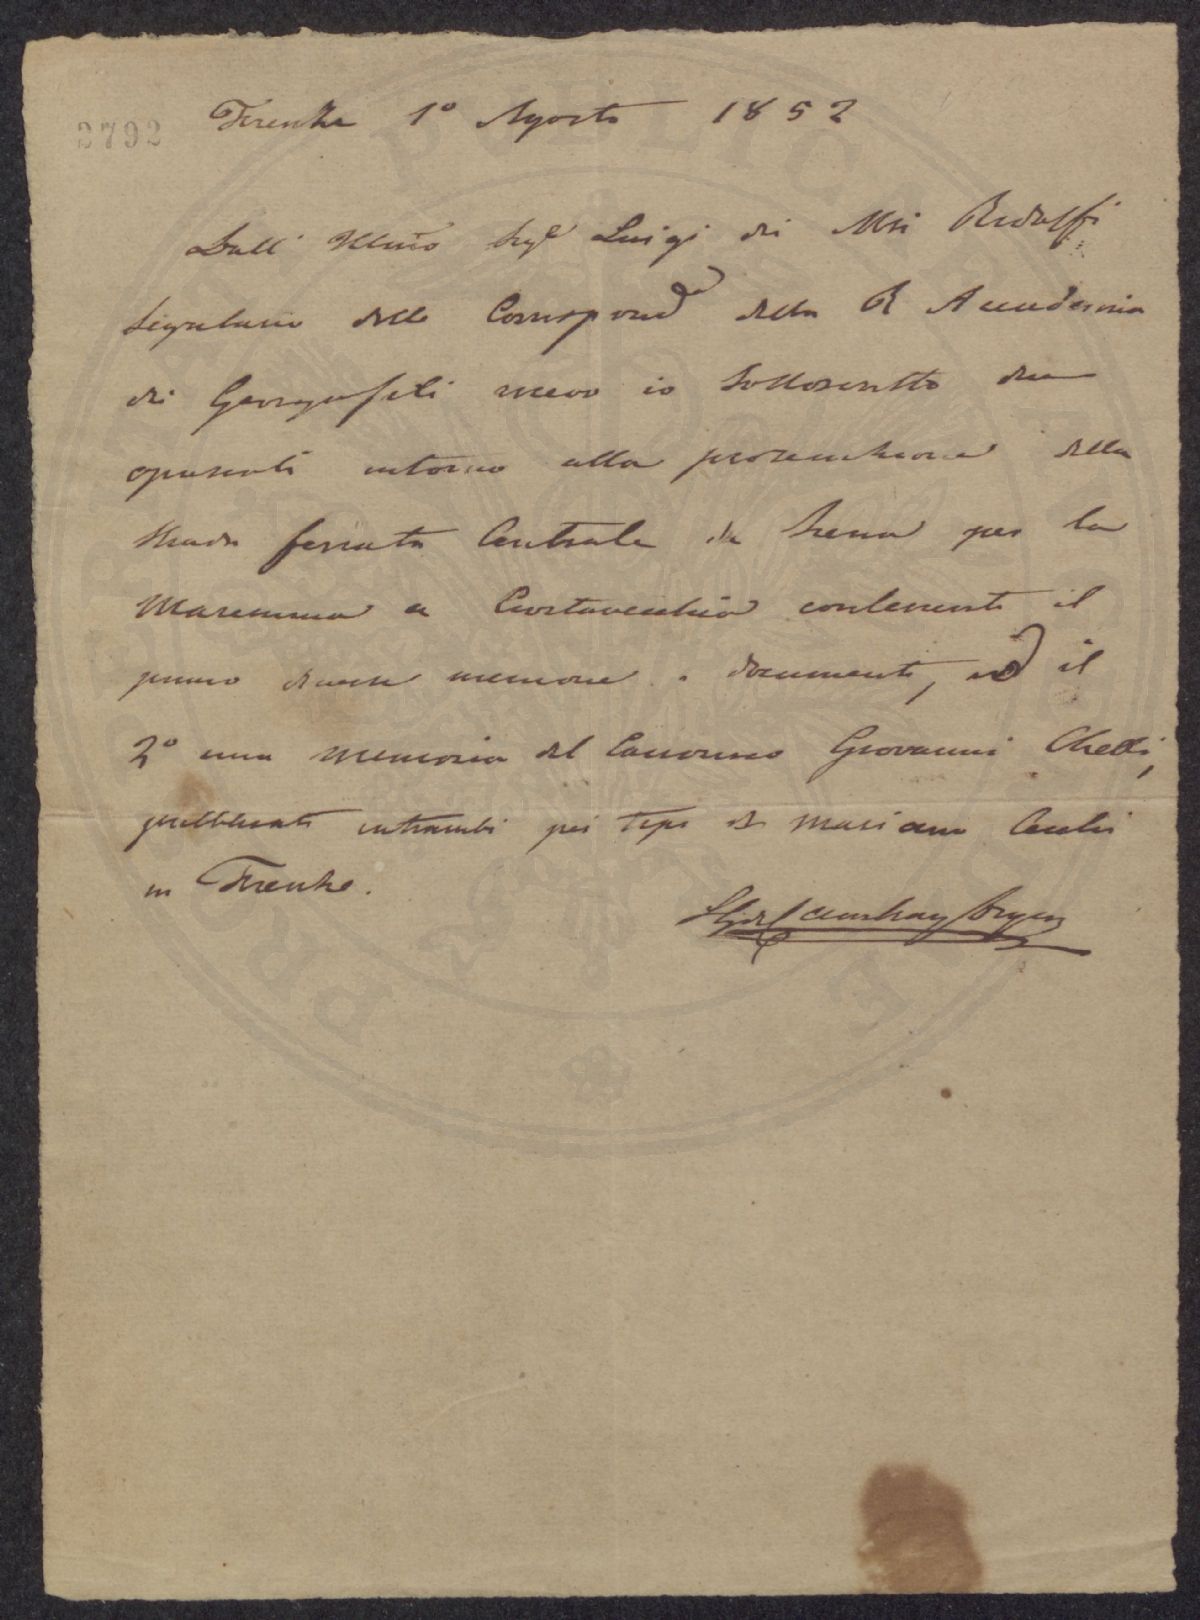 2792
Firenze 1º Agosto 1852
Dall' Illmo Sigr Luigi dei Msi Ridolfi
Segretario delle Corrispond della R Accademia
dei Georgofili ricevo io sottoscritto due
opuscoli intorno alla prosecuzione della
strada ferrata Centrale da Siena per la
Maremma a Civitavecchia contenenti il
primo diverse memorie e documenti, ed il
2º una memoria del Canonico Giovanni Chelli,
pubblicati entrambi pei tipi di Mariano Cecchi
in Firenze.